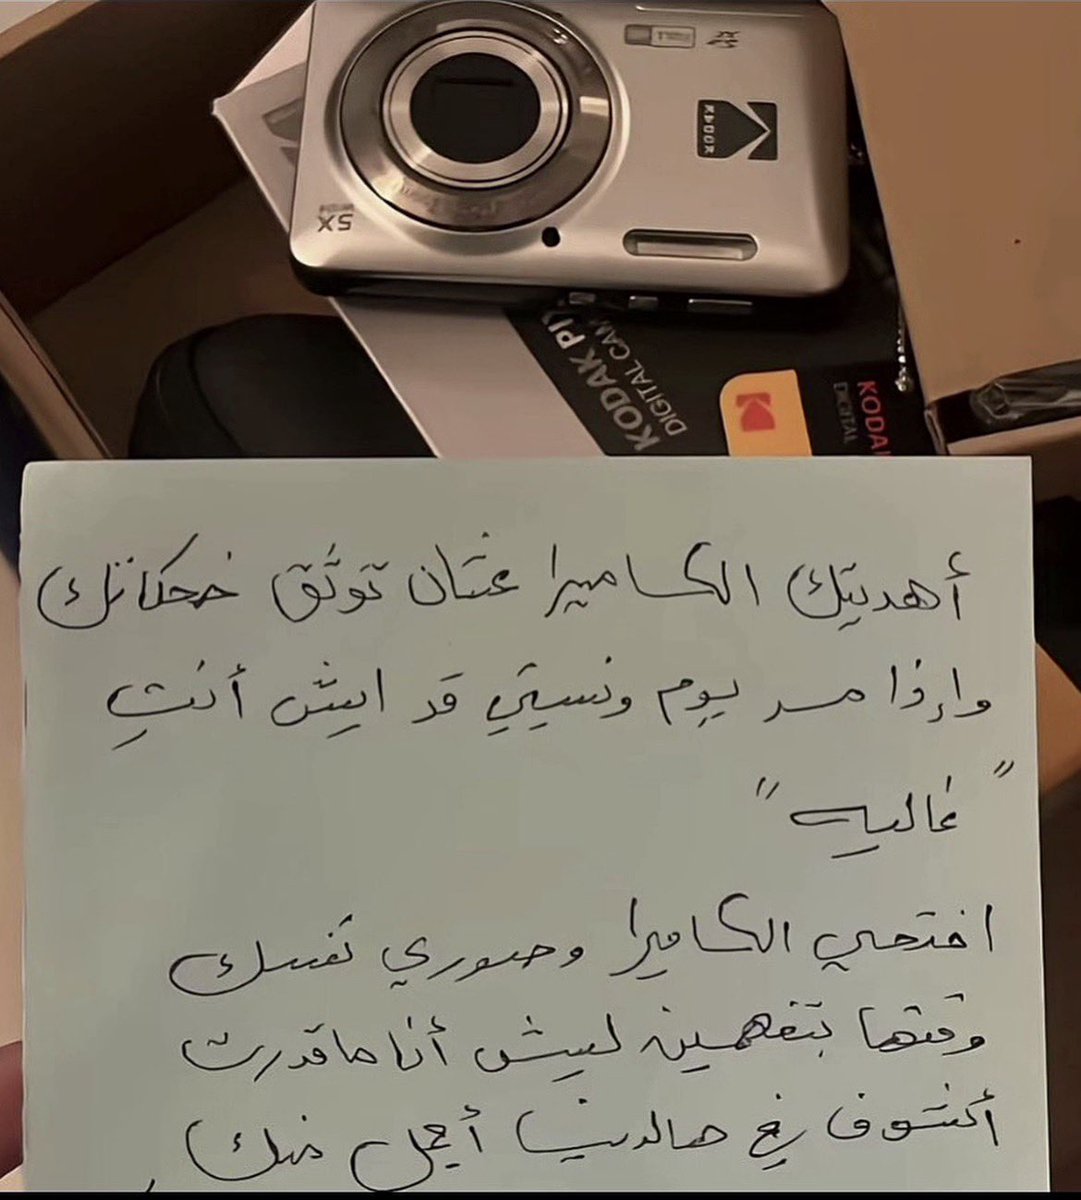 5X
KODAK
KODAK PI
DIGITAL CAM
KODA
DIGITAL
أهديتك الكاميرا عشان توثق ضحكاتك
وإذا مر يوم ونسيتي قد ايش أنتِ
"غاليه"
افتحي الكاميرا وصوري نفسك
وقتها بتفهمين ليش أنا ماقدرت
أشوف في هالدنيا أجمل منك